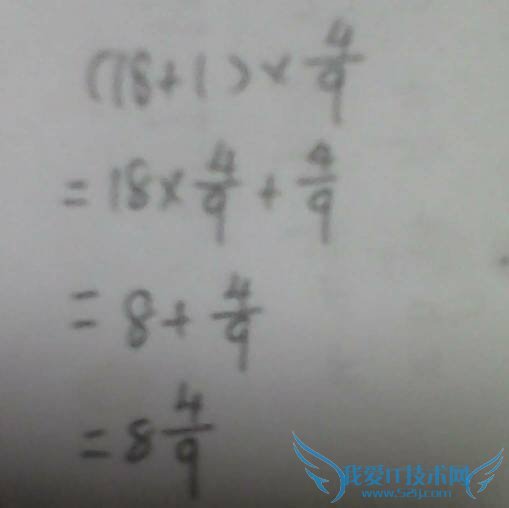 (18+1)×4/9
=18×4/9+4/9
=8+4/9
=8 4/9
我爱IT技术网
www.52ij.com